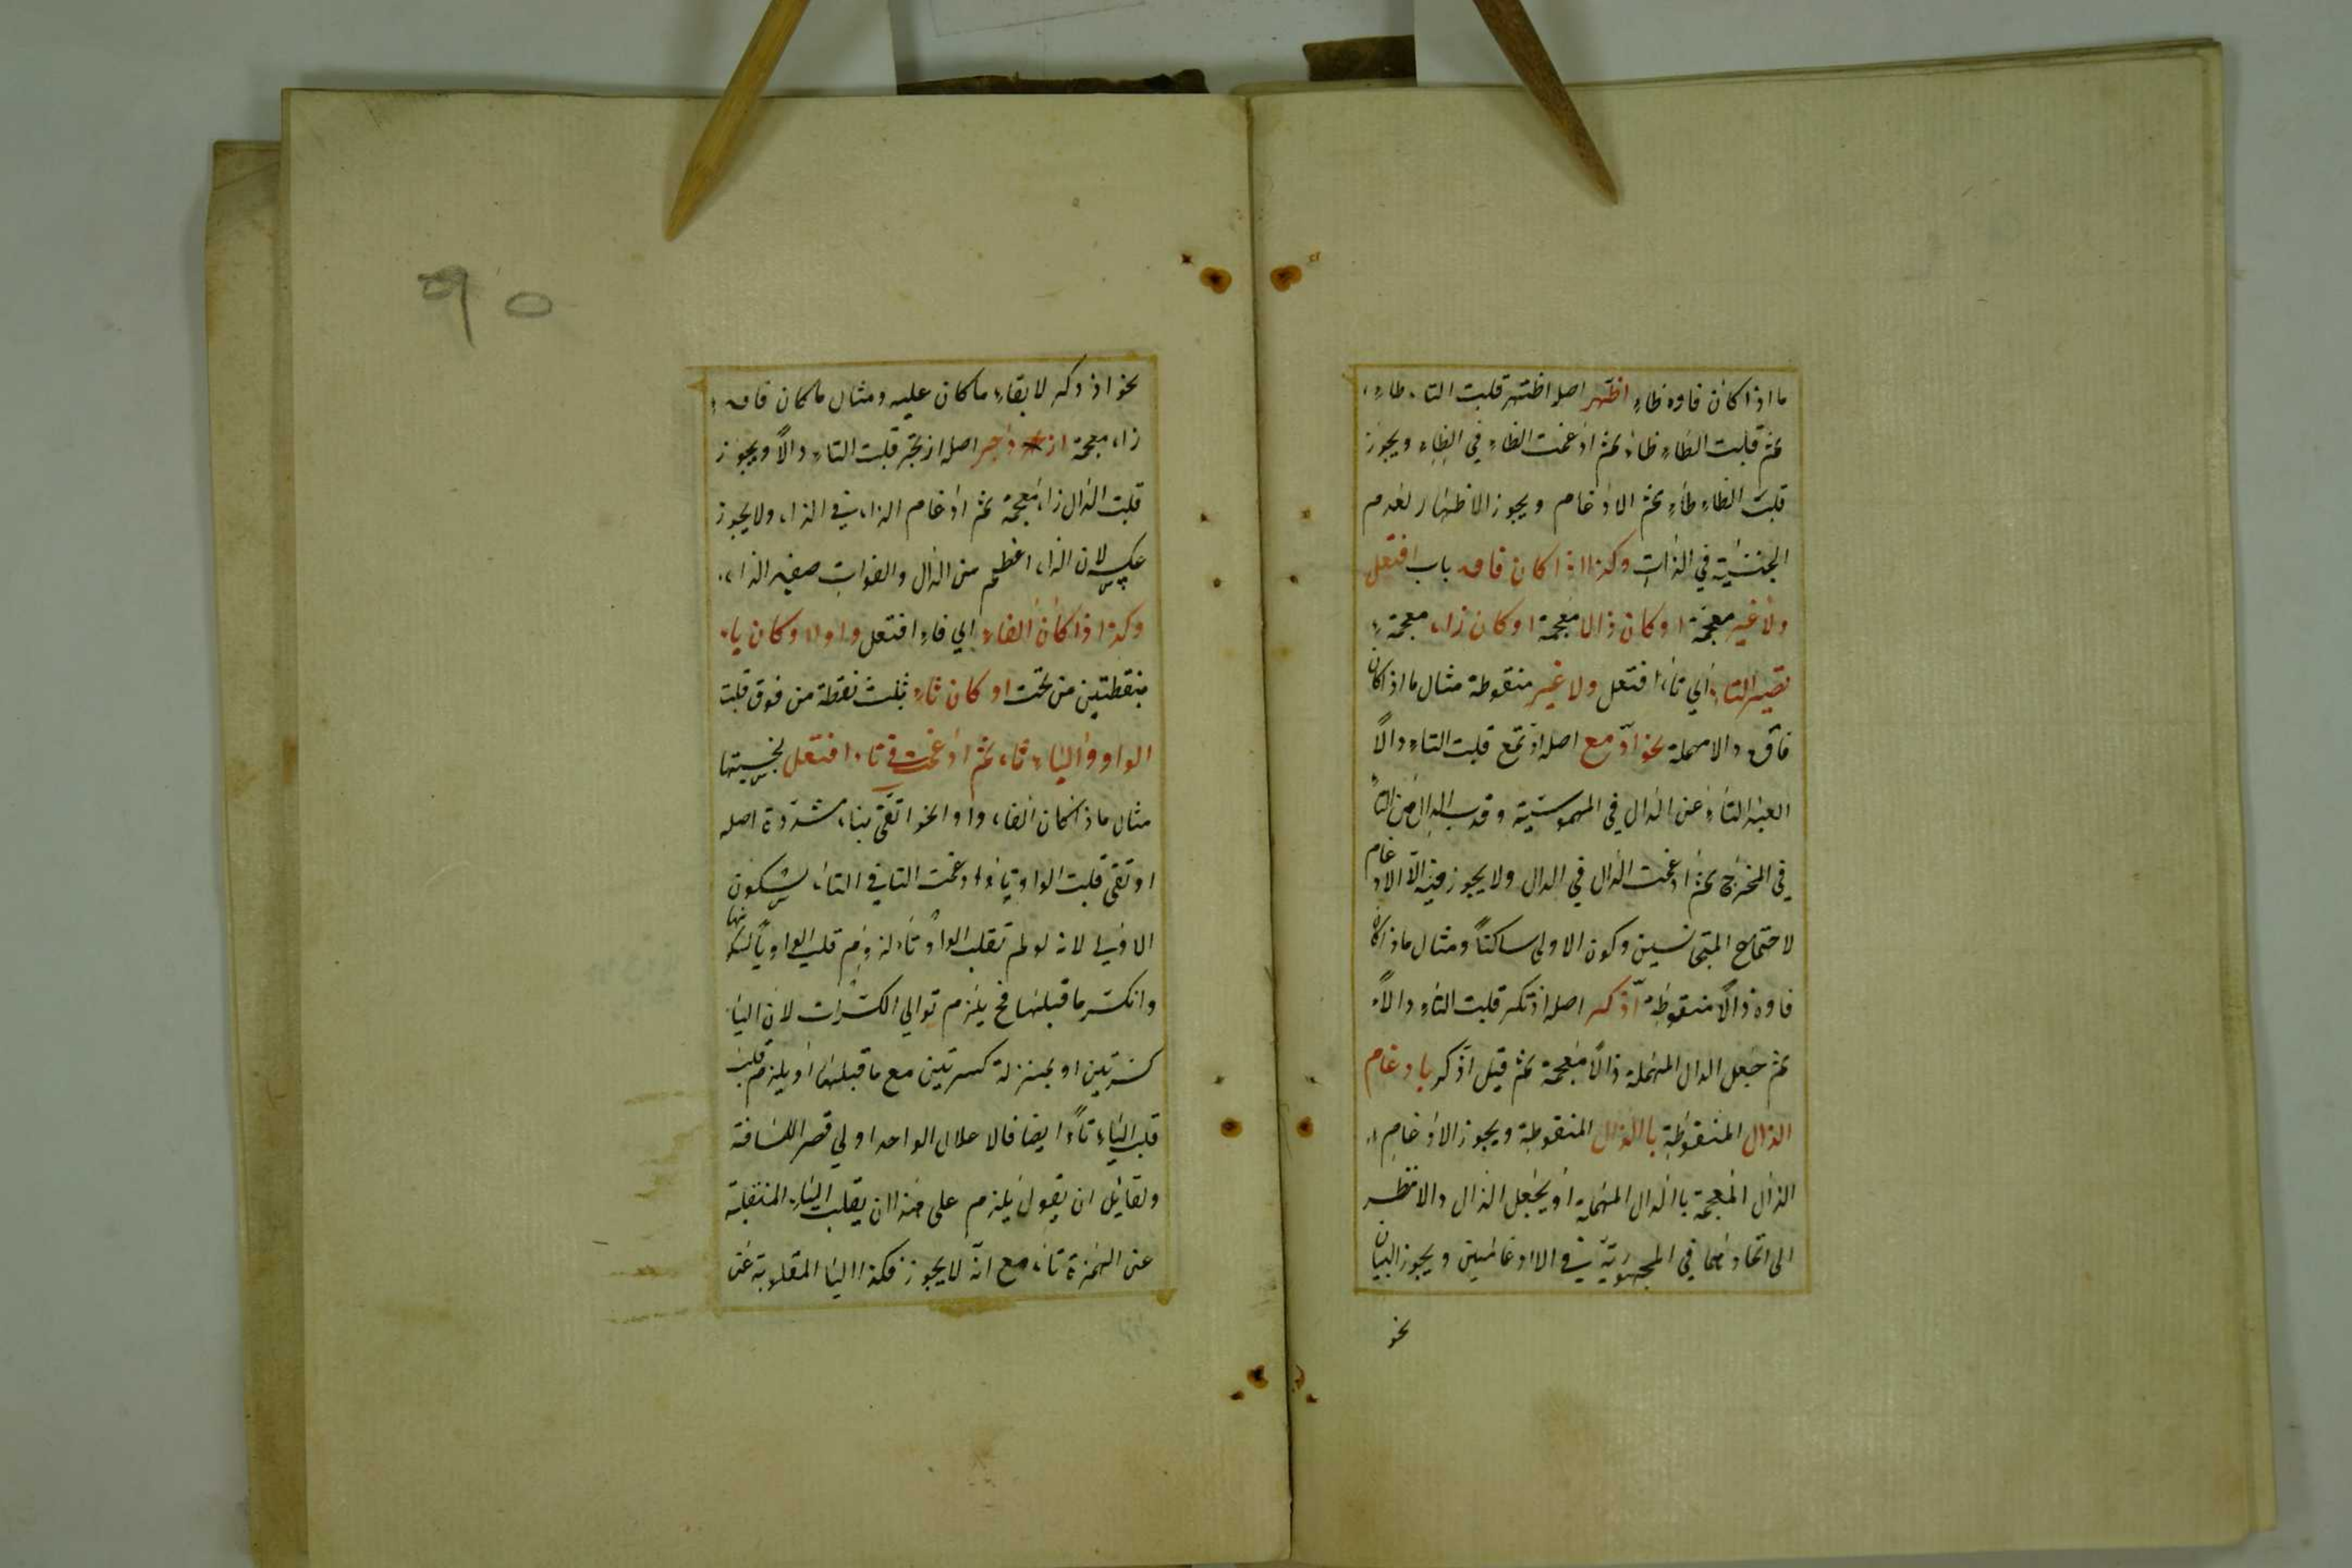 ما اذا كان فاوه ظاء اظهر اصله اظتهر قلبت التاء طاء
ثم قلبت الطاء ظاء ثم ادغمت الظاء في الظاء ويجوز
قلبت الظاء طاء ثم الادغام ويجوز الاظهار لعدم
الجنسية في الذات وكذا اذا كان فاء باب افتعل
دلا غير معجمة او كان ذالا معجمة او كان زاء معجمة
تصير التاء اي تاء افتعل دلا غير منقوطة مثال ما اذا كان
فاؤه دالا مهملة نحو ادّمع اصله ادتمع قلبت التاء دالاً
التاء عن الدال في المهموسية وقرب الدال من التاء
في المخرج ثم ادغمت الدال في الدال ولا يجوز فيه الا الادغام
لاجتماع المتجانسين وكون الاولى ساكناً ومثال ما اذا كان
فاوه ذالاً منقوطة اذّكر اصله اذتكر قلبت التاء دالاً
ثم جعل الدال المهملة ذالاً معجمة ثم قيل اذّكر بادغام
الذال المنقوطة بالذال المنقوطة ويجوز الادغام
الذال المعجمة بالدال المهملة او يجعل الذال دالا نظر
الى اتحادهما في المجهورية في الادغامين ويجوز البيان
نحو
٩٥
نحو اذدكر لابقاء ما كان عليه ومثال ما كان فاءه
زاء معجمة ازدجر اصله ازتجر قلبت التاء دالاً ويجوز
قلبت الدال زاء معجمة ثم ادغام الزاء في الزاء ولا يجوز
عكسه لان الزاء اعظم من الدال والفوات صفير الزاء
وكذا اذا كان الفاء اي فاء افتعل واوا او كان ياء
بنقطتين من تحت او كان ثاء بثلث نقطة من فوق قلبت
الواو والياء تاء ثم ادغمت في تاء افتعل لجنسيتها
مثال ما اذا كان الفاء واوا نحو اتّقى بتاء مشددة اصله
اوتقى قلبت الواو تاء وادغمت التا في التاء لسكون
الاولى لانه لو لم تقلب الواو تاء لزم قلب الواو ياً لسكونها
وانكسر ما قبلها فح يلزم توالي الكسرات لان الياء
كسرتين او بمنزلة كسرتين مع ما قبلها او يلزم قلب
قلب الياء تاءً ايضا فالاعلال الواحد اولى قصر المسافة
ولقائل ان يقول يلزم على هذا ان يقلب الياء المنقلبة
عن الهمزة تاء مع انه لا يجوز فكذا اليا المقلوبة عن